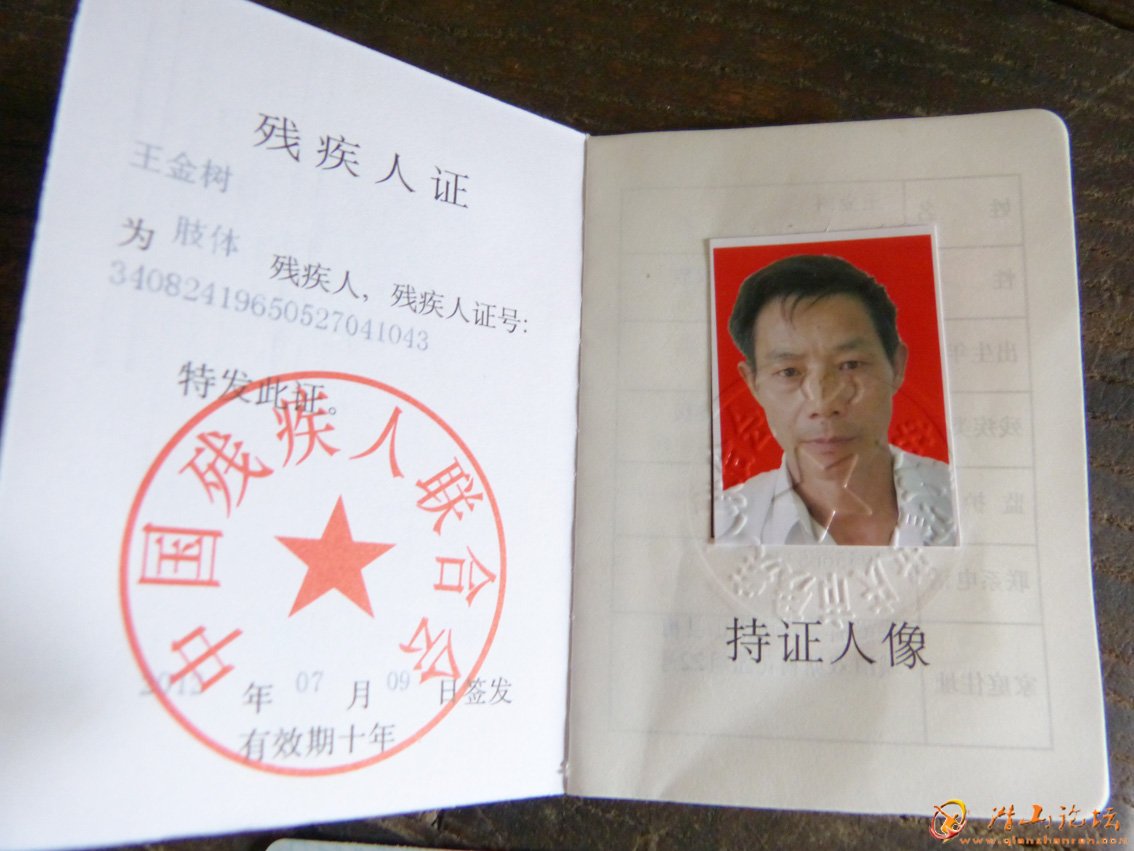 残疾人证
王金树
为 肢体 残疾人，残疾人证号:
34082419650527041043
特发此证。
中国残疾人联合会
2012 年 07 月 09 日签发
有效期十年
持证人像
潜山论坛
www.qianshanren.com